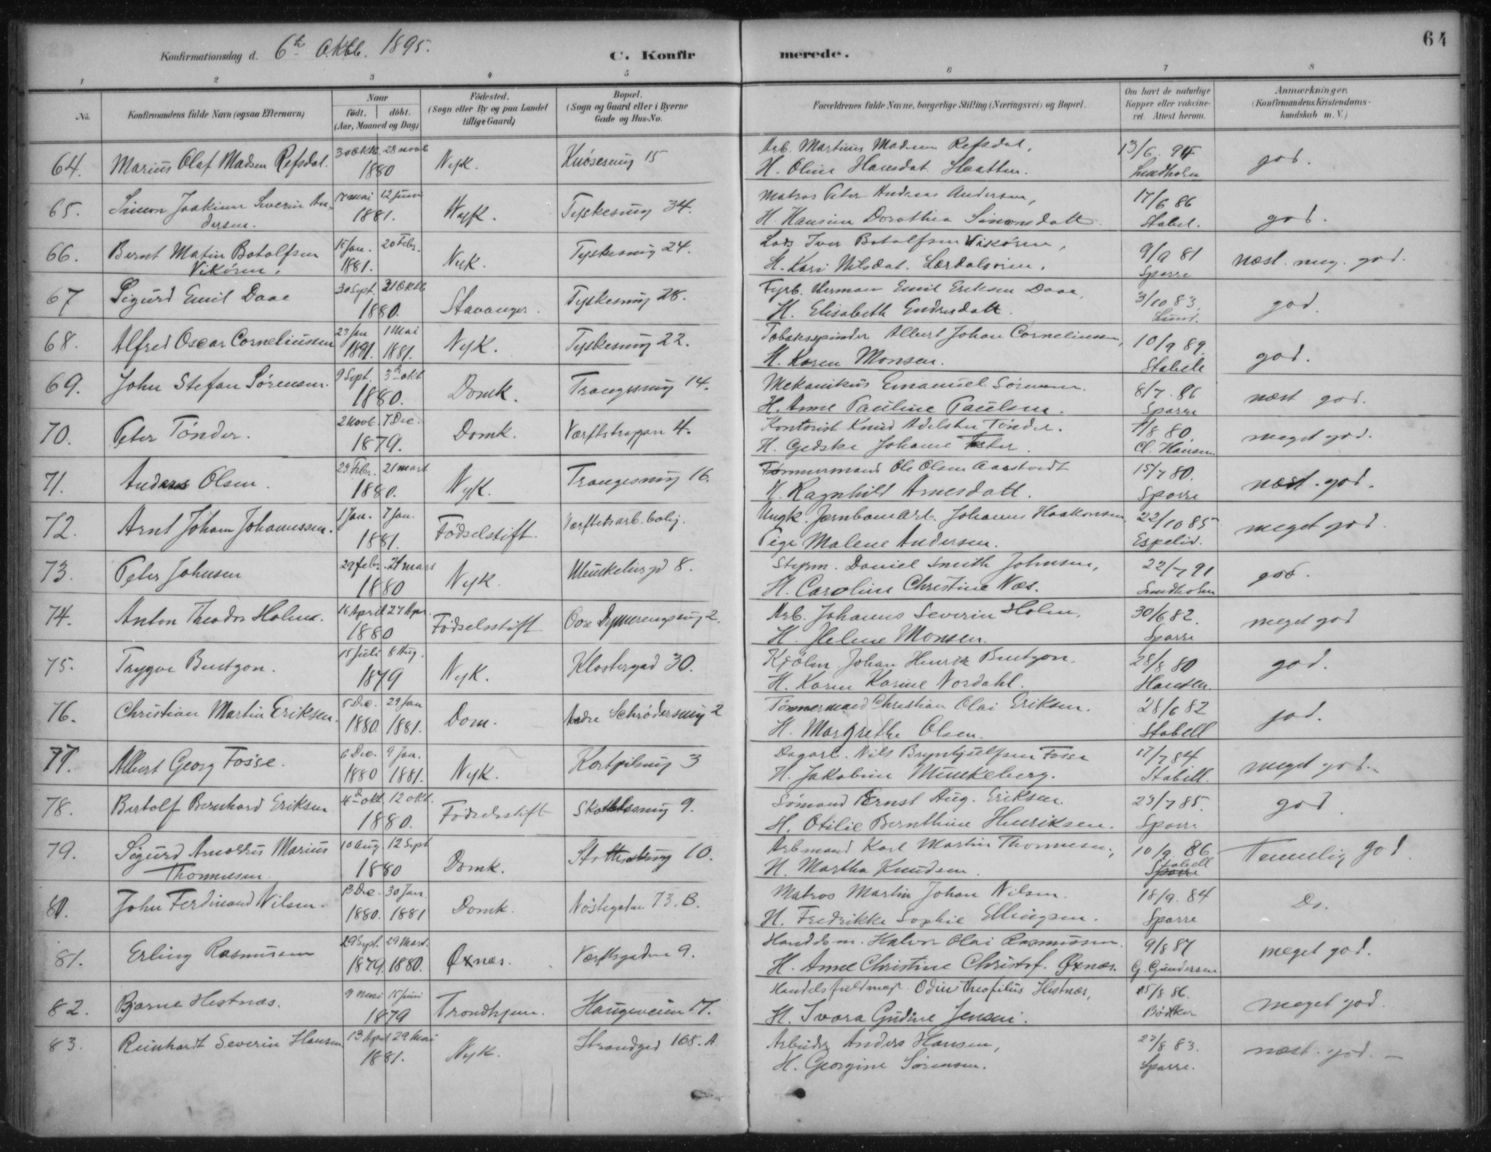 64
Konfirmationsdag d. 6te Oktb. 1895.
C. Konfirmerede.
1 2 3 4 5 6 7 8
No. Konfirmandens fulde Navn (ogsaa Efternavn) Naar født. døbt. (Aar, Maaned og Dag) Fødested. (Sogn eller By og paa Landet tillige Gaard) Bopæl. (Sogn og Gaard eller i Byerne Gade og Hus-No. Forældrenes fulde Navne, borgerlige Stilling (Næringsvei) og Bopæl. Om havt de naturlige Kopper eller vaccineret. Attest herom. Anmærkninger. (Konfirmandens Kristendomskundskab m. V.)
64. Marius Olaf Madsen Refsdal. 1880 Nyk. 15 Arb. Martinus Madsen Refsdal, H. Oline Hansdat. 13/6 94 Lindholm god.
65. Simon Joakim Severin Andersen. 17 mai 12 juni 1881. Nyk. Tyskesmug 34. Matros Peter Andreas Andersen, H. Hansine Dorothea Simonsdatt. 17/6 86 Stabel. god.
66. Bernt Matin Botolfsen Vikören. 15 Jan. 20 Febr. 1881. Nyk. Tyskesmug 24. Iver Botolfsen Vikören, H. Kari Nilsdat. Lærdalsören. 9/9 81 Sparre næst. meg. god.
67 Sigurd Emil Daae 30 Sept. 31 Oktb 1880. Stavanger. Tyskesmug 28. Fyrb. Herman Emil Eriksen Daae, H. Elisabeth Endresdatt. 3/10 83, Lund. god.
68. Alfred Oscar Corneliussen 23 Jan 1 Mai 1881. 1881. Nyk. Tyskesmug 22. Tobaksspinder Albert Johan Corneliussen, H. Karen Monsen. 10/9 89. Stabell god.
69. John Stefan Sörensen. 9 Sept. 3 okt 1880. Domk. Trangesmug 14. Mekanikus Emanuel Sörensen. H. Anne Pauline Paulsen. 8/7. 86 Sparre næst god.
70. Peter Tönder. 2 Novb. 7 Dec. 1879. Domk. Værftstrappen 4. Kontorist Knud Adelsten Tönder. H. Gedske Johanne 80. Cl. Hansen meget god.
71. Anders Olsen. 23 Febr. 21 mart 1880. Nyk. Trangesmug 16. Tömmermand Ole Olsen H. Ragnhild Arnesdatt. 15/7 80. Sparre næst. god.
72. Arnt Johan Johannessen. 1 Jan. 7 Jan. 1881. Födselstift. Værftetsarb. bolig. Ungk. Jernbanearb. Johannes Haakonsen, Pige Malene Andersen. 22/10 85 Espelid. meget god.
73. Peter Johnsen 29 Feb. 21 mars 1880 Nyk. 8. Styrm. Daniel Smith Johnsen, H. Caroline Christine Næs. 22/7 91 Lindholm god.
74. Anton Theodor Holm. 16 April 27 Apr. 1880 Födselsstift 2. Arb. Johannes Severin Holm, H. Helene Monsen. 30/6 82. Sparre meget god
75. Tryggve Bentzon. 15 Juli 8 Aug. 1879 Nyk. Klostergad 30. Kjöbm. Johan Henrik Bentzon. H. Karen Karine Nordahl. 28/8 80 Hansen. god.
76. Christian Martin Eriksen. 5 Dec. 29 Jan 1880. 1881. Dom. Andre Schrödersmug 2 Tömmermand Christian Olai Eriksen. H. Margrethe Olsen. 28/6 82 Stabell god.
77. Albert Georg Fosse. 6 Dec. 9 Jan. 1880 1881. Nyk. Kortpilsmug 3 Dagarb. Nils Brynhjulfsen Fosse H. Jakobine Munkeberg. 17/7 84 Stabell. meget god.
78. Bertolf Bernhard Eriksen 4 okt. 12 okt. 1880. Födselsstift 9. Sömand Ernst Aug. Eriksen. H. Otilie Bernthine Henriksen. 23/7 85. Sparre god
79. Sigurd Arnoldus Marius Thomassen. 10 Aug. 12 Sept 1880 Domk. 10. Arbmand Karl Martin Thomassen, H. Martha Knudsen. 10/9 86 Stabell Sparre Temmelig god.
80. John Ferdinand Nilsen. 13 Dec. 30 Jan 1880. 1881 Domk. Nöstegaden 73. B. Matros Martin Johan Nilsen. H. Fredrikke Sophie Ellingsen. 18/9. 84 Sparre Do.
81. Erling Rasmussen 29 Sept. 29 Mars. 1879. 1880. Øxnes. Værftsgaden 9. Handelsm. Halvor Olai Rasmussen. H. Anne Christine Christof. Øxnæs. 9/8 87 G. Gundersen meget god.
82. Bjarne Hestnæs. 9 mai 15 Juni 1879 Trondhjem. Haugeveien 17. Handelsfuldmægt. Odin Theofilus Hestnæs, H. Ivara Gudine Jensen. 15/8 86. Bödker meget god.
83. Reinhardt Severin Hansen 13 April 29 Mai 1881. Nyk. Strandgad 168. A Arbeider Anders Hansen, H. Georgine Sörensen. 27/8 83. Sparre. næst. god. —